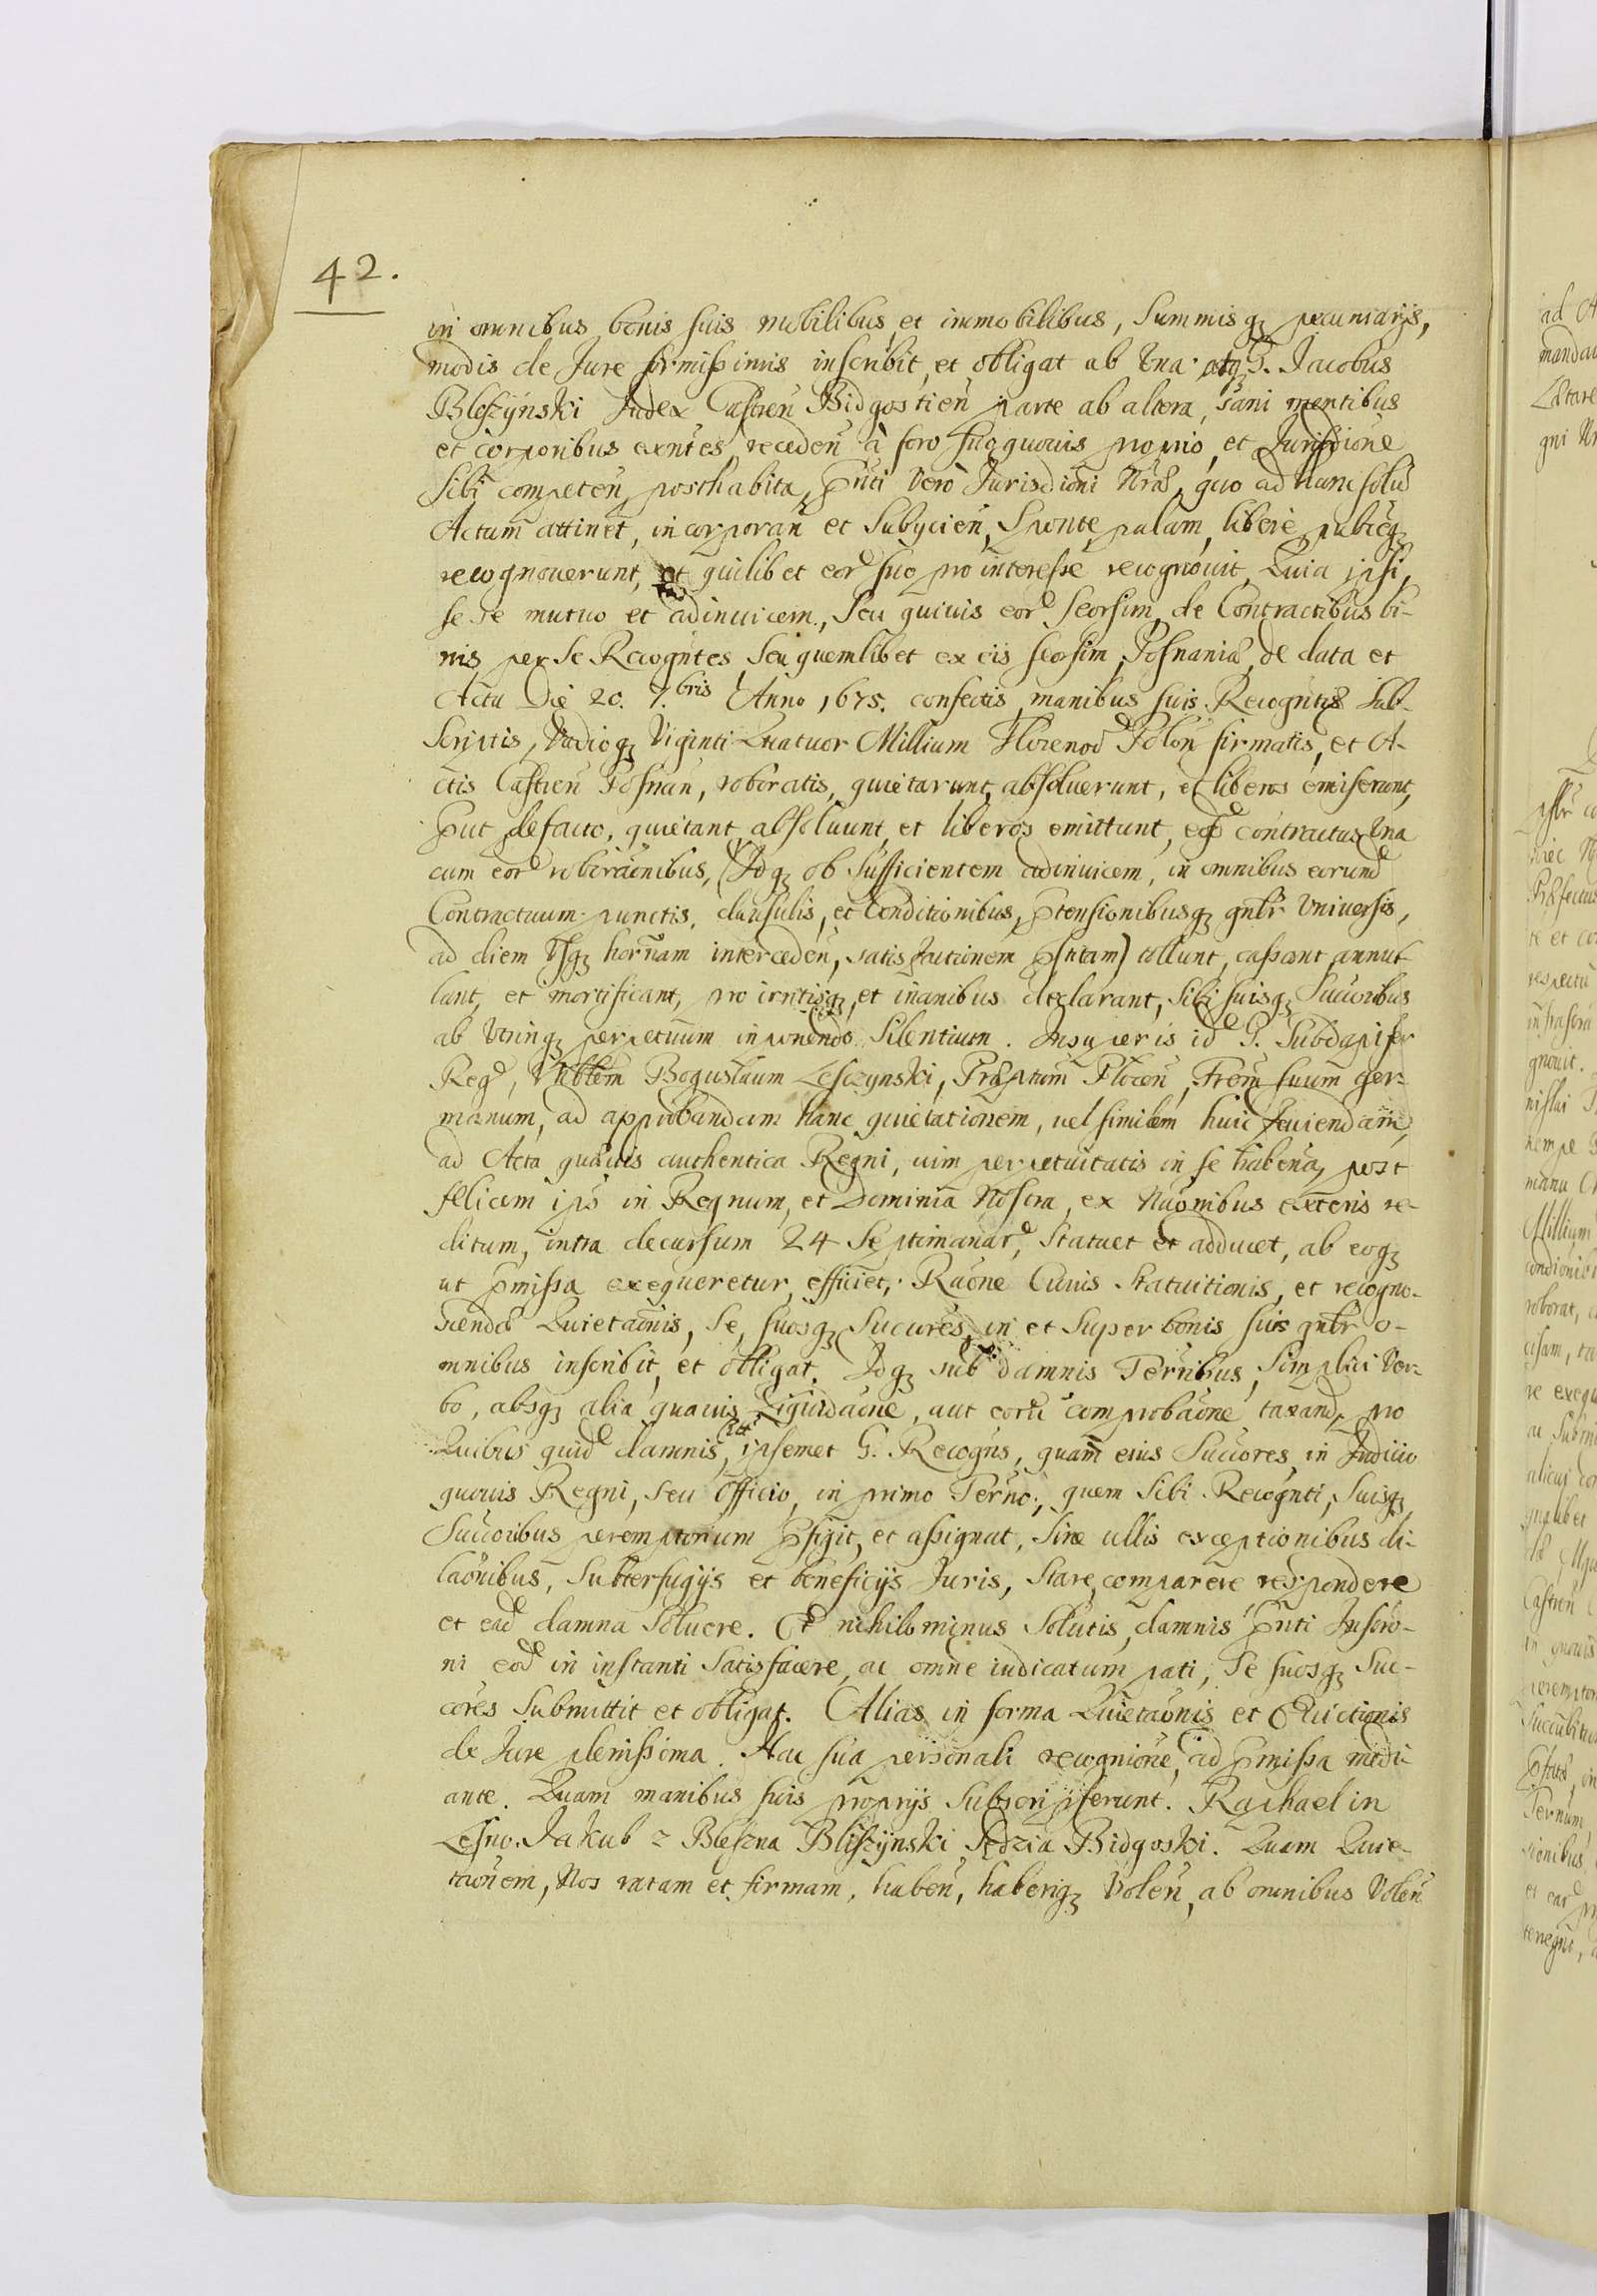 42.
in omnibus bonis suis mobilibus et immobilibus, Summisqȝ pecuniarijs,
modis de Jure firmissimis inscribit, et obligat ab Una. atqȝ G. Jacobus
Bleszÿnski Judex Castren̄ Bidgostien̄ parte ab altera, sani mentibus
et corporibus exn̄tes, receden̄ à foro suo quouis proprio, et Jurisdiōne
sibi competen̄, posthabita, P̄n̄ti Verò Jurisdiōni N̄r̄æ, quo ad hunc solū
Actum attinet, incorporan̄ et Subycien̄, Sponte, palam, liberè, publiceqȝ
recognouerunt, et quilibet eor̄ suo pro interesse recognouit, Quia ipsi,
se se mutuo et adinuicem, Seu quiuis eor̄ seorsim, de Contractibus bi-
nis, per Se Recogn̄tes Seu quemlibet ex eis seorsim, Posnaniæ, de data et
Actu Die 20. 7.bris Anno 1675. confectis, manibus suis Recogn̄tiū Sub-
scriptis, Vadioqȝ Viginti Quatuor Millium Florenor̄ Polon̄ firmatis, et A-
ctis Castren̄ Posnan̄, roboratis, quietarunt, absoluerunt, et liberos emiserunt,
P̄ut defacto, quietant, absoluunt, et liberos emittunt, eosd̄ contractus Una
cum eor̄ roboraōnibus, Idqȝ ob Sufficientem adinuicem, in omnibus eorund̄
Contractuum punctis, clausulis, et Conditionibus, P̄tensionibusqȝ gn̄lr̄ Universis,
ad diem Usqȝ hod̄nam interceden̄, satisfactionem P̄stitam) tollunt, cassant, annul-
lant, et mortificant, pro irritisqȝ, et inanibus declarant, Sibi suisqȝ Succōribus
ab Utrinqȝ perpetuum inponendo Silentium. Insuper is id̄ G. Subdapifer
Reg̃, Vn̄blem Boguslaum Lesczynski, Præp̄tum Plocen̄, Frēm suum ger-
manum, ad approbandam hanc quietationem, uel similem huic faciendam,
ad Acta quæuis authentica Regni, uim perpetuitatis in se haben̄a, post
felicem ips̄ in Regnum, et Dominia Nostra, ex Nāōnibus exteris re-
ditum, intra decursum 24 Septimanar̄, Statuet et adducet, ab eoqȝ
ut P̄missa exequeretur, efficiet, Rāōne Cuius Statuitionis, et recogno-
scendæ Quietāōnis, Se, suosqȝ Succōres, in et Super bonis suis gn̄lr̄ o-
mnibus inscribit, et obligat. Idqȝ sub damnis Terr̄ibus, Simplici Ver-
bo, absqȝ alia quauis Liquidāōne, aut eor̄ū comprobāōne taxand̄, pro
Quibus quid̄ damnis, tā ipsemet G. Recogn̄s, quam̄ eius Succōres, in Judicio
quouis Regni, seu Officio, in primo Tern̄o, quem Sibi Recogn̄ti, Suisqȝ
Succōribus peremptorium P̄figit, et assignat, Sine ullis exceptionibus di-
lāōnibus, Subterfugÿs et beneficÿs Juris, Stare, comparere respondere
et ead̄ damna Soluere. Et nihilominus Solutis, damnis P̄n̄ti Inscrō-
ni eod̄ in instanti Satisfacere, ac omne iudicatum pati, Se suosqȝ Suc-
cōres Submittit et obligat. Alias in forma Quietāōnis et Euictionis
de Jure plenissima. Hac sua personali recogniōne, ad P̄missa medi-
ante. Quam manibus suis proprÿs Subscripserunt. Raphael in
Leszno. Jakub z Bleszna Bliszÿnski Sędzia Bidgoski. Quam Quie-
tāōnem, Nos ratam et firmam, haben̄, haberiqȝ Volen̄, ab omnibus Volen̄